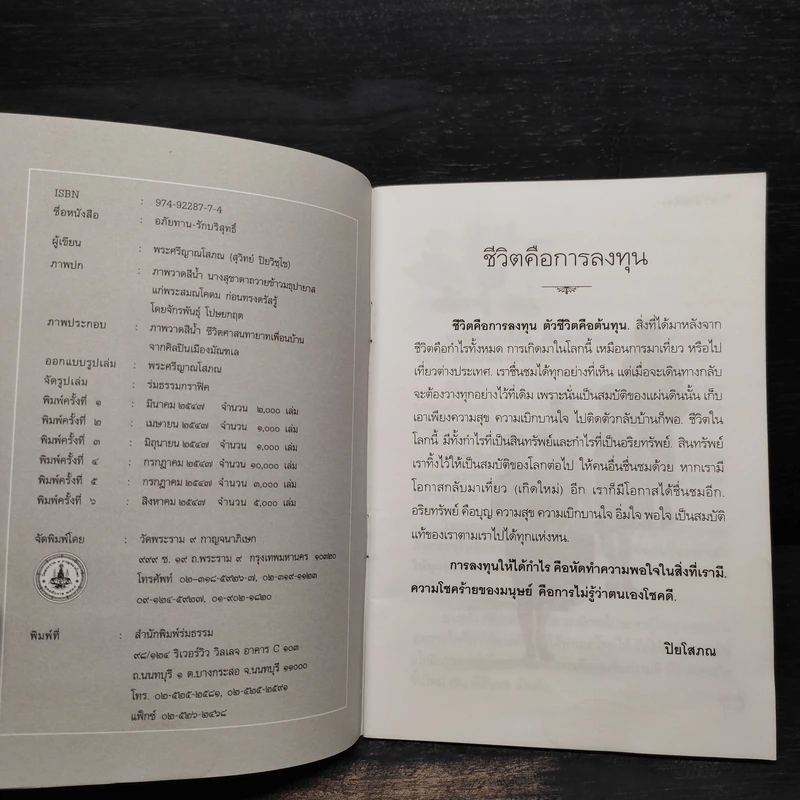 ISBN : 974-92287-7-4
ชื่อหนังสือ : อภัยทาน-รักบริสุทธิ์
ผู้เขียน : พระศรีญาณโสภณ (สุวิทย์ ปิยวิชฺโช)
ภาพปก : ภาพวาดสีน้ำ นางสุชาดาถวายข้าวมธุปายาส
แก่พระสมณโคดม ก่อนทรงตรัสรู้
โดยจักรพันธุ์ โปษยกฤต
ภาพประกอบ : ภาพวาดสีน้ำ ชีวิตศาสนทายาทเพื่อนบ้าน
จากศิลปินเมืองมัณฑเล
ออกแบบรูปเล่ม : พระศรีญาณโสภณ
จัดรูปเล่ม : ร่มธรรมกราฟิค
พิมพ์ครั้งที่ ๑ : มีนาคม ๒๕๔๗ จำนวน ๒,๐๐๐ เล่ม
พิมพ์ครั้งที่ ๒ : เมษายน ๒๕๔๗ จำนวน ๑,๐๐๐ เล่ม
พิมพ์ครั้งที่ ๓ : มิถุนายน ๒๕๔๗ จำนวน ๑,๐๐๐ เล่ม
พิมพ์ครั้งที่ ๔ : กรกฎาคม ๒๕๔๗ จำนวน ๑๐,๐๐๐ เล่ม
พิมพ์ครั้งที่ ๕ : กรกฎาคม ๒๕๔๗ จำนวน ๓,๐๐๐ เล่ม
พิมพ์ครั้งที่ ๖ : สิงหาคม ๒๕๔๗ จำนวน ๕,๐๐๐ เล่ม
จัดพิมพ์โดย : วัดพระราม ๙ กาญจนาภิเษก
๙๙๙ ซ. ๑๙ ถ.พระราม ๙ กรุงเทพมหานคร ๑๐๓๒๐
โทรศัพท์ ๐๒-๓๑๘-๕๙๒๖-๗, ๐๒-๓๑๙-๑๑๒๓
๐๙-๑๒๔-๕๙๒๗, ๐๑-๙๐๒-๑๘๒๐
พิมพ์ที่ : สำนักพิมพ์ร่มธรรม
๙๘/๑๒๔ ริเวอร์วิว วิลเลจ อาคาร C ๑๐๓
ถ.นนทบุรี ๑ ต.บางกระสอ จ.นนทบุรี ๑๑๐๐๐
โทร. ๐๒-๕๒๕-๒๕๘๑, ๐๒-๕๒๕-๒๕๙๑
แฟ็กซ์ ๐๒-๕๒๖-๒๔๖๘
ชีวิตคือการลงทุน
ชีวิตคือการลงทุน ตัวชีวิตคือต้นทุน. สิ่งที่ได้มาหลังจาก
ชีวิตคือกำไรทั้งหมด การเกิดมาในโลกนี้ เหมือนการมาเที่ยว หรือไป
เที่ยวต่างประเทศ. เราชื่นชมได้ทุกอย่างที่เห็น แต่เมื่อจะเดินทางกลับ
จะต้องวางทุกอย่างไว้ที่เดิม เพราะนั่นเป็นสมบัติของแผ่นดินนั้น เก็บ
เอาเพียงความสุข ความเบิกบานใจ ไปติดตัวกลับบ้านก็พอ. ชีวิตใน
โลกนี้ มีทั้งกำไรที่เป็นสินทรัพย์และกำไรที่เป็นอริยทรัพย์. สินทรัพย์
เราทิ้งไว้ให้เป็นสมบัติของโลกต่อไป ให้คนอื่นชื่นชมด้วย หากเรามี
โอกาสกลับมาเที่ยว (เกิดใหม่) อีก เราก็มีโอกาสได้ชื่นชมอีก.
อริยทรัพย์ คือบุญ ความสุข ความเบิกบานใจ อิ่มใจ พอใจ เป็นสมบัติ
แท้ของเราตามเราไปได้ทุกแห่งหน.
การลงทุนให้ได้กำไร คือหัดทำความพอใจในสิ่งที่เรามี.
ความโชคร้ายของมนุษย์ คือการไม่รู้ว่าตนเองโชคดี.
ปิยโสภณ